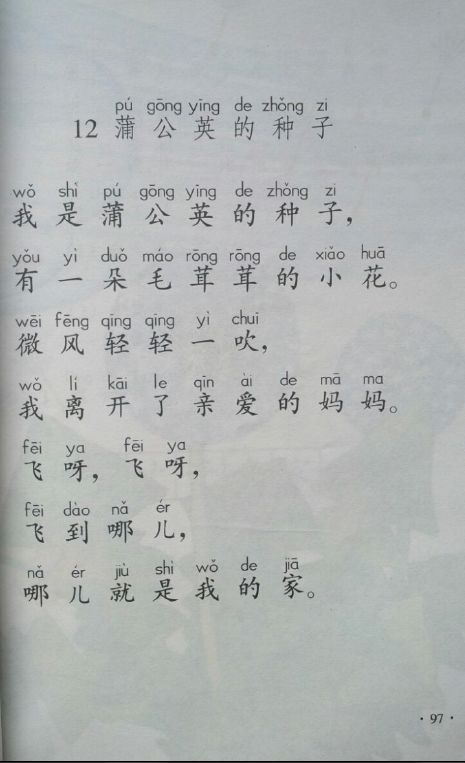 pú gōng yīng de zhǒng zi
12 蒲公英的种子
wǒ shì pú gōng yīng de zhǒng zi
我是蒲公英的种子，
yǒu yì duǒ máo rōng rōng de xiǎo huā
有一朵毛茸茸的小花。
wēi fēng qīng qīng yì chuī
微风轻轻一吹，
wǒ lí kāi le qīn ài de mā ma
我离开了亲爱的妈妈。
fēi ya fēi ya
飞呀，飞呀，
fēi dào nǎ ér
飞到哪儿，
nǎ ér jiù shì wǒ de jiā
哪儿就是我的家。
· 97 ·